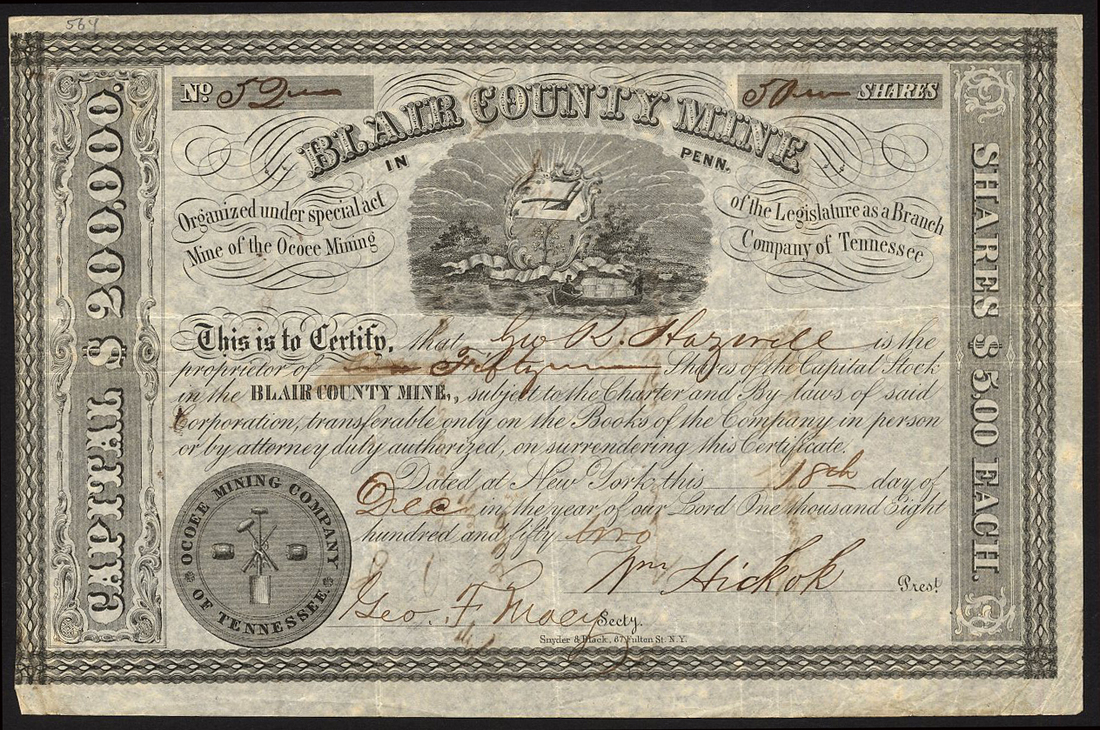 564
Nº 52 50 SHARES
BLAIR COUNTY MINE
IN PENN.
Organized under special act of the Legislature as a Branch
Mine of the Ocoee Mining Company of Tennessee
CAPITAL $ 200,000.
SHARES $5,00 EACH.
This is to Certify, that Geo R. Hazwell is the
proprietor of Fifty Shares of the Capital Stock
in the BLAIR COUNTY MINE,, subject to the Charter and By-laws of said
Corporation, transferable only on the Books of the Company in person
or by attorney duly authorized, on surrendering this Certificate.
Dated at New York this 18th day of
Dec in the year of our Lord One thousand Eight
hundred and fifty two
Wm Hickok Prest
Geo. F. Macy Secty.
OCOEE MINING COMPANY
OF TENNESSEE
Snyder & Black, 87 Fulton St. N.Y.